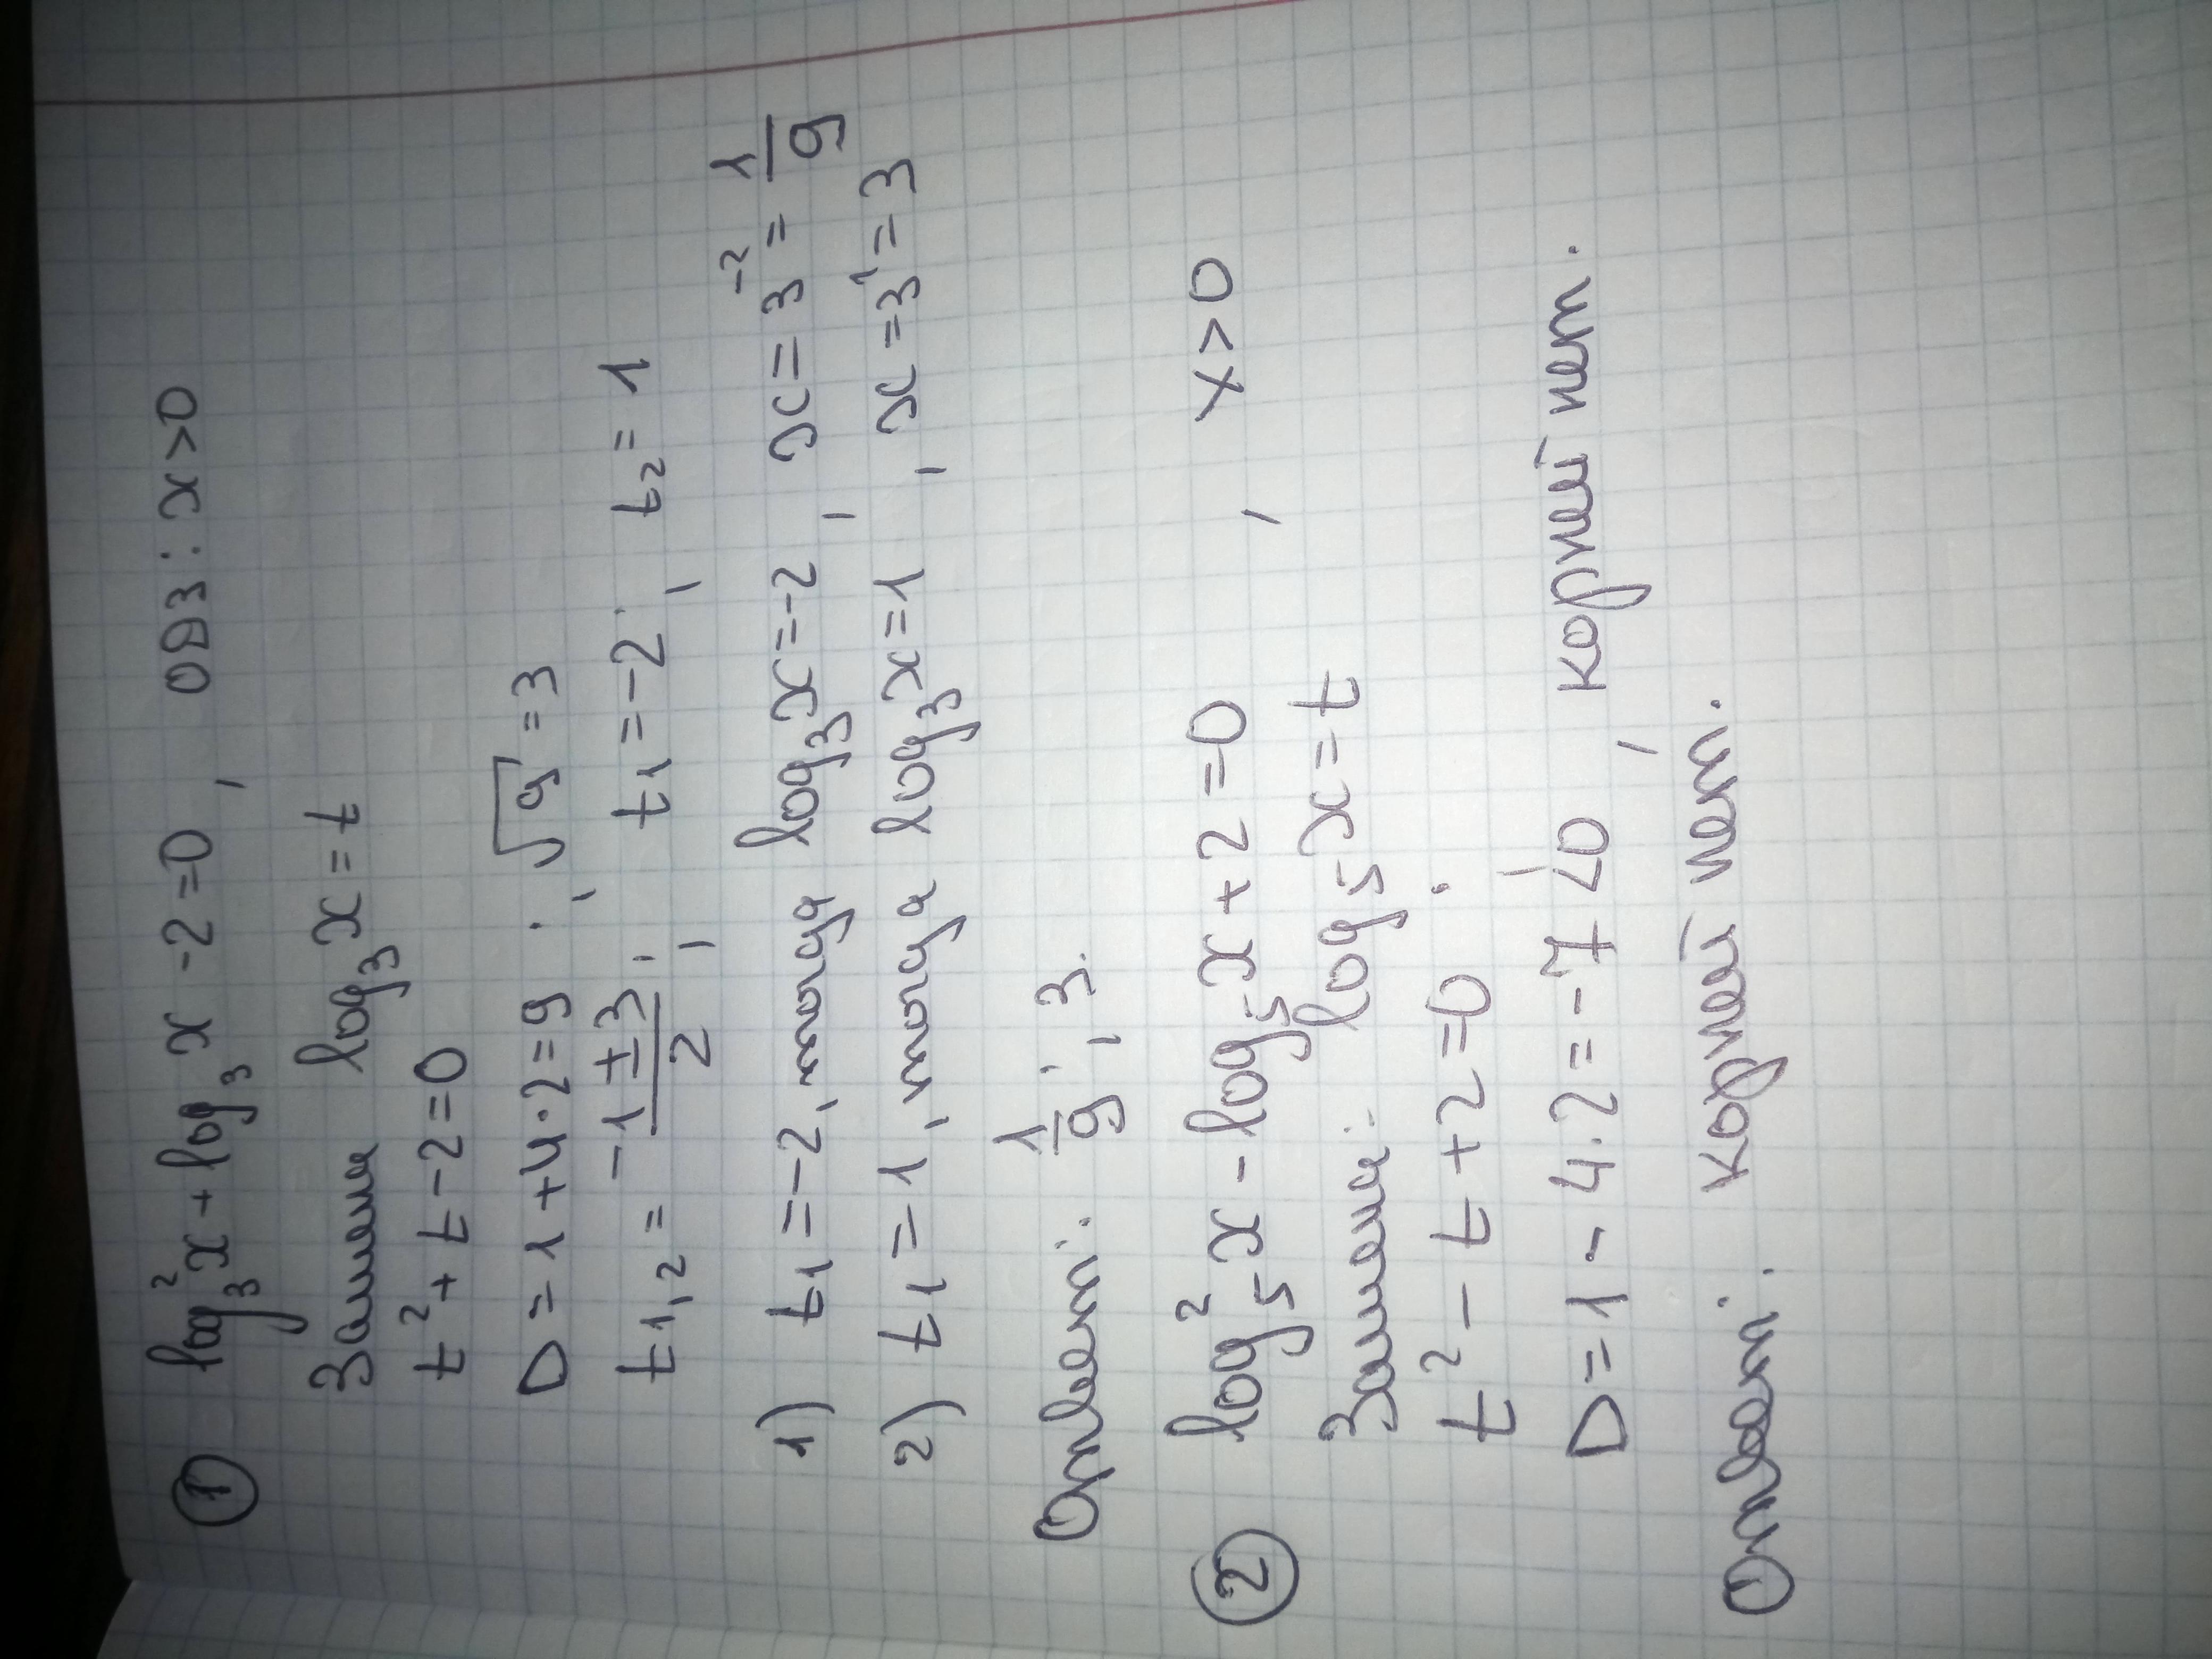 ① log₃²x + log₃x - 2 = 0, ОДЗ: x > 0
Замена log₃x = t
t² + t - 2 = 0
D = 1 + 4·2 = 9; √9 = 3
t₁,₂ = (-1 ± 3)/2; t₁ = -2; t₂ = 1
1) t₁ = -2, тогда log₃x = -2, x = 3⁻² = 1/9
2) t₁ = 1, тогда log₃x = 1, x = 3¹ = 3
Ответ: 1/9; 3.
② log₅²x - log₅x + 2 = 0, x > 0
Замена: log₅x = t
t² - t + 2 = 0.
D = 1 - 4·2 = -7 < 0, корней нет.
Ответ: корней нет.